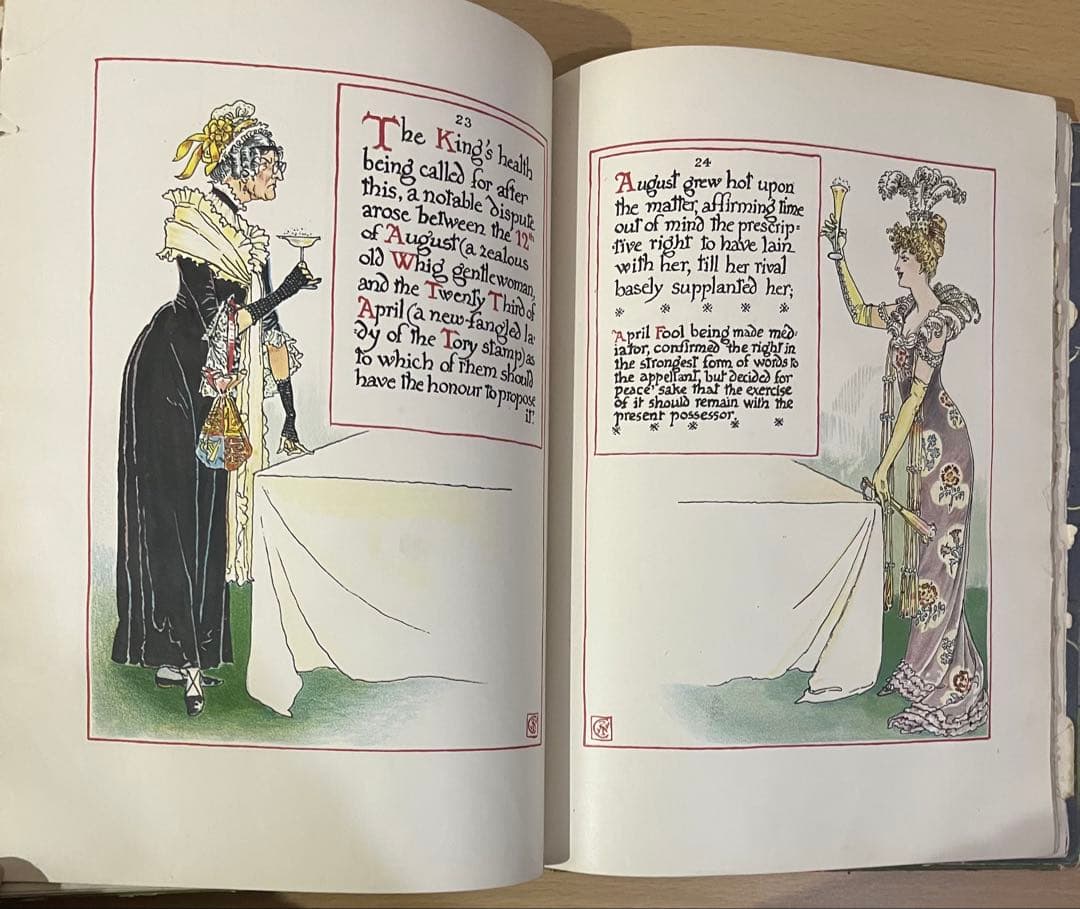 23
The King's health
being called for after
this, a notable dispute
arose between the 12th
of August (a zealous
old Whig gentlewoman,
and the Twenty Third of
April (a new-fangled la-
dy of the Tory stamp) as
to which of them should
have the honour to propose
it.
24
August grew hot upon
the matter, affirming time
out of mind the prescrip=
tive right to have lain
with her, till her rival
basely supplanted her;
April Fool being made med-
iator, confirmed the right in
the strongest form of words to
the appellant, but decided for
peace' sake that the exercise
of it should remain with the
present possessor.